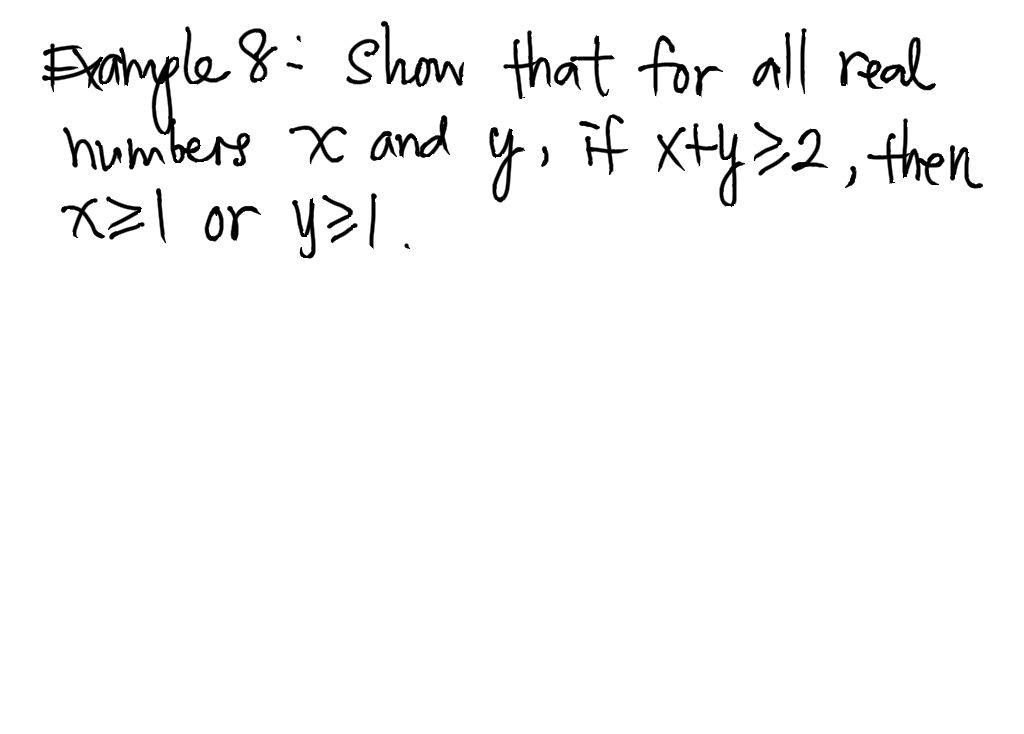 Example 8: Show that for all real
numbers x and y, if x+y⩾2, then
x⩾1 or y⩾1.